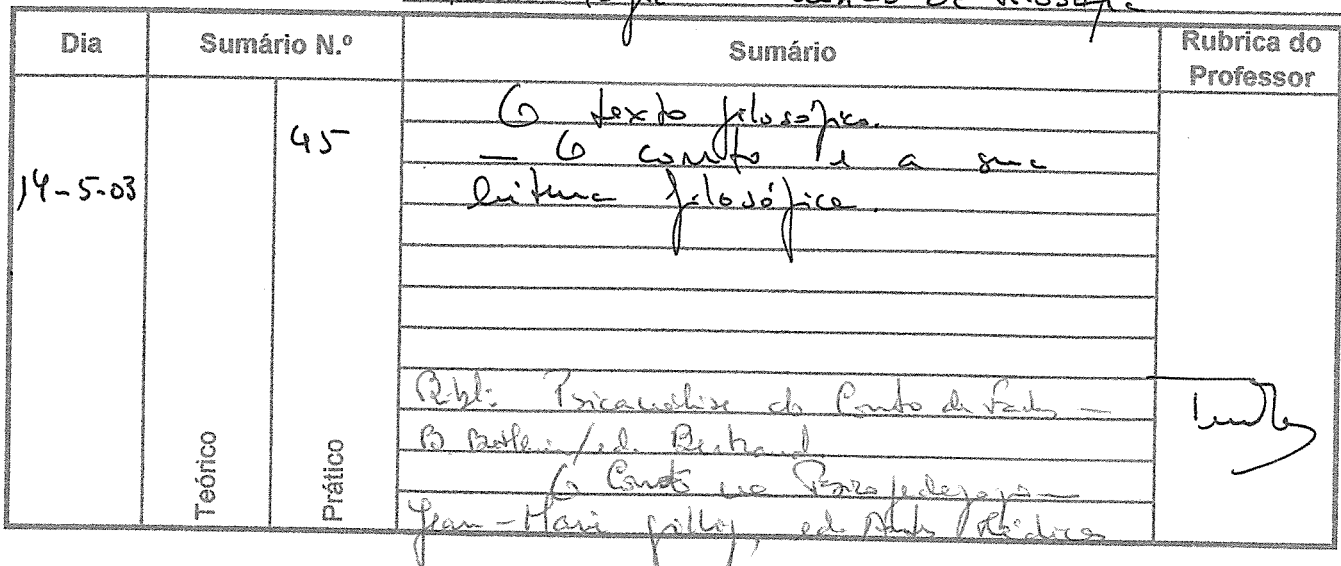 de Filosofia
Dia
Sumário N.º
Sumário
Rubrica do
Professor
14-5-03
45
O texto filosófico.
— O conto e a sua
leitura filosófica.
Teórico
Prático
Bibl: Psicanálise do Conto de Fadas —
B. Bettelheim / ed. Bertrand
O Conto na Psicopedagogia —
Jean-Marie Gillig, ed. Artes Médicas